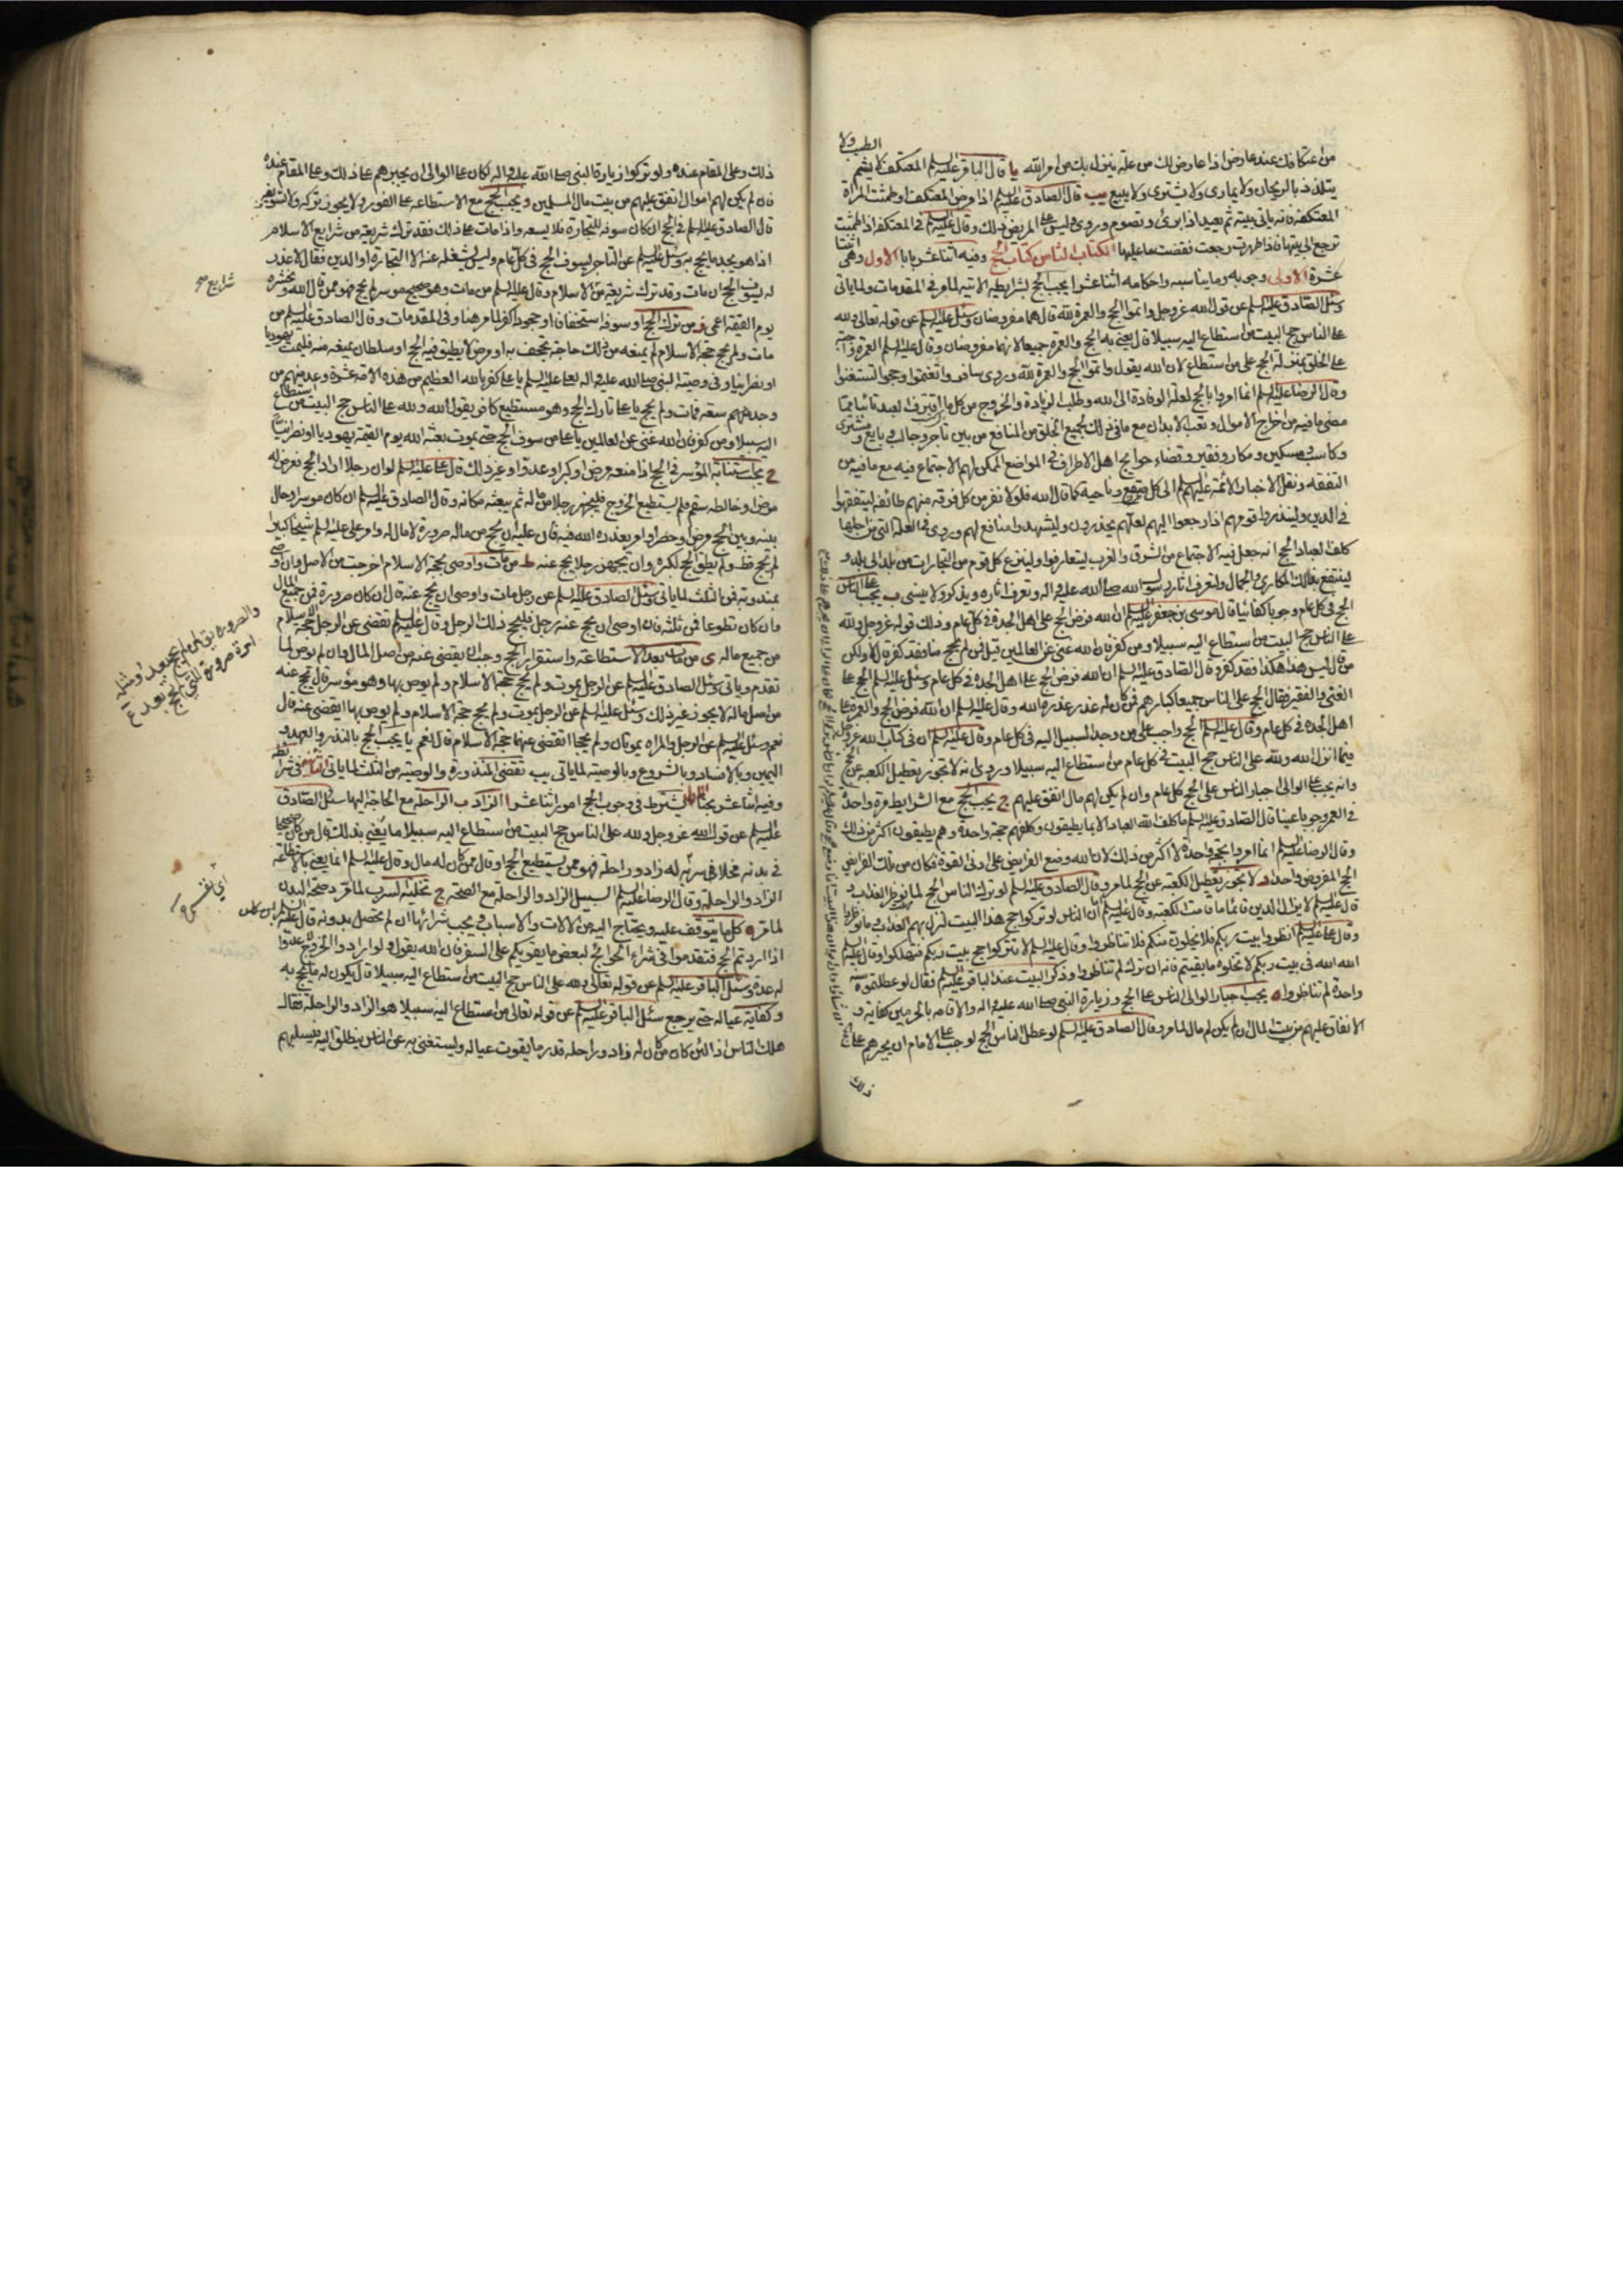 من اعتكافك عند عارض اذا عارض لك من علة ينزل بك من امر الله يا قال الباقر عليه السلم المعتكف لا يشم الطيب ولا
يتلذذ بالريحان ولا يمارى ولا يشترى ولا يبيع يب قال الصادق عليه السلم اذا مرض المعتكف او طمثت المراة
المعتكفة فانه ياتى بيته ثم يعيد اذا برئ ويصوم وروى وليس على المريض ذلك وقال عليه السلم فى المعتكفة اذا طمثت
ترجع الى بيتها فاذا طهرت رجعت فقضت ما عليها الكتاب كتاب الحج وفيه اثناعشر بابا الاول وهى اثنتا
عشرة الاولى وجوبه وما يناسبه واحكامه اثناعشر ا يجب الحج بشرايطه الاتية لما مر فى المقدمات ولما ياتى
وسئل الصادق عليه السلم عن قول الله عز وجل واتموا الحج والعمرة لله قال هما مفروضان وسئل عليه السلم عن قوله تعالى ولله
على الناس حج البيت من استطاع اليه سبيلا قال يعنى به الحج والعمرة جميعا لانهما مفروضان وقال عليه السلم العمرة واجبة
على الخلق بمنزلة الحج على من استطاع لان الله يقول واتموا الحج والعمرة لله وروى سافروا تغنموا وحجوا تستغنوا
وقال الرضا عليه السلم انما امروا بالحج لعلة الوفادة الى الله وطلب الزيادة والخروج من كل ما اقترف العبد تائبا مما
مضى مافيه من اخراج الاموال وتعب الابدان مع ما فى ذلك لجميع الخلق من المنافع من بين تاجر وجالب وبايع ومشترى
وكاسب ومسكين ومكار وفقير وقضاء حوايج اهل الاطراف فى المواضع الممكن لهم الاجتماع فيه مع ما فيه من
التفقه ونقل الاخبار الائمة عليهم السلم الى كل صقع وناحية كما قال الله فلولا نفر من كل فرقة منهم طائفة ليتفقهوا
فى الدين ولينذروا قومهم اذا رجعوا اليهم لعلهم يحذرون وليشهدوا منافع لهم وروى فى العلة التى من اجلها
كلف العباد الحج انه جعل فيه الاجتماع من الشرق والغرب ليتعارفوا ولينزع كل قوم من التجارات من بلد الى بلد و
لينتفع بذلك المكارى والجمال ولتعرف اثار رسول الله صلى الله عليه واله وتعرف اخباره ويذكر ولا ينسى ب يجب على الناس
الحج فى كل عام وجوبا كفائيا قال موسى بن جعفر عليه السلم ان الله فرض الحج على اهل الجدة فى كل عام وذلك قوله عز وجل ولله
على الناس حج البيت من استطاع اليه سبيلا ومن كفر فان الله غنى عن العالمين قيل فمن لم يحج منا فقد كفر قال لا ولكن
من قال ليس هذا هكذا فقد كفر وقال الصادق عليه السلم ان الله فرض الحج على اهل الجدة فى كل عام وسئل عليه السلم الحج على
الغنى والفقير فقال الحج على الناس جميعا كبارهم فمن كان له عذر عذره الله وقال عليه السلم ان الله فرض الحج والعمرة على
اهل الجدة فى كل عام وقال عليه السلم الحج واجب على من وجد السبيل اليه فى كل عام وقال عليه السلم ان فى كتاب الله عز وجل
فيما انزل الله ولله على الناس حج البيت فى كل عام من استطاع اليه سبيلا وروى انه لا يجوز تعطيل الكعبة عن الحج
وانه يجب على الوالى اجبار الناس على الحج كل عام وان لم يكن لهم مال انفق عليهم ج يجب الحج مع الشرايط مرة واحدة
فى العمر وجوبا عينا قال الصادق عليه السلم ما كلف الله العباد الا ما يطيقون وكلفهم حجة واحدة وهم يطيقون اكثر من ذلك
وقال الرضا عليه السلم انما امروا بحجة واحدة لا اكثر من ذلك لان الله وضع الفرايض على ادنى القوة فكان من تلك الفرايض
الحج المفروض واحدا د لا يجوز تعطيل الكعبة عن الحج لما مر وقال الصادق عليه السلم لو ترك الناس الحج لما نوظروا العذاب و
قال عليه السلم لا يزال الدين قائما ما قامت الكعبة وقال عليه السلم اما ان الناس لو تركوا حج هذا البيت لنزل بهم العذاب وما نوظروا
وقال على عليه السلم انظروا بيت ربكم فلا يخلون منكم فلا تناظروا وقال عليه السلم لا تتركوا حج بيت ربكم فتهلكوا وقال عليه السلم
الله الله فى بيت ربكم لا تخلوه ما بقيتم فانه ان ترك لم تناظروا وذكر البيت عند الباقر عليه السلم فقال لو عطلتموه سنة
واحدة لم تناظروا ه يجب اجبار الوالى الناس على الحج وزيارة النبى صلى الله عليه واله والاقامة بالحرمين كفاية و
الانفاق عليهم من بيت المال ان لم يكن لهم مال لما مر وقال الصادق عليه السلم لو عطل الناس الحج لوجب على الامام ان يجبرهم على الحج
ذلك
ذلك وعلى المقام عنده ولو تركوا زيارة النبى صلى الله عليه واله لكان على الوالى ان يجبرهم على ذلك وعلى المقام عنده
فان لم يكن لهم اموال انفق عليهم من بيت مال المسلمين و يجب الحج مع الاستطاعة على الفور ولا يجوز تركه ولا تسويفه
قال الصادق عليه السلم فى الحج ان كان سوفه للتجارة فلا يسعه واذا مات على ذلك فقد ترك شريعة من شرايع الاسلام
اذا هو يجد ما يحج به وسئل عليه السلم عن التاجر يسوف الحج فى كل عام وليس يشغله عنه الا التجارة او الدين فقال لا عذر
له يسوف الحج ان مات وقد ترك شريعة من الاسلام وقال عليه السلم من مات وهو صحيح موسر لم يحج فهو ممن قال الله ونحشره
يوم القيمة اعمى ز من ترك الحج او سوفه استخفافا او جحودا كفر لما مر هنا وفى المقدمات وقال الصادق عليه السلم من
مات ولم يحج حجة الاسلام لم يمنعه من ذلك حاجة تجحف به او مرض لا يطيق فيه الحج او سلطان يمنعه منه فليمت يهوديا
او نصرانيا وفى وصية النبى صلى الله عليه واله لعلى عليه السلم يا على كفر بالله العظيم من هذه الامة عشرة وعد منهم من
وجد منهم سعة فمات ولم يحج يا على تارك الحج وهو مستطيع كافر يقول الله ولله على الناس حج البيت من استطاع
اليه سبيلا ومن كفر فان الله غنى عن العالمين يا على من سوف الحج حتى يموت بعثه الله يوم القيمة يهوديا او نصرانيا
ح يجب استنابة الموسر فى الحج اذا منعه مرض او كبر او عدو او غير ذلك قال على عليه السلم لو ان رجلا اراد الحج فعرض له
مرض او خالطه سقم فلم يستطع الخروج فليجهز رجلا من ماله ثم يبعثه مكانه وقال الصادق عليه السلم ان كان موسرا وحال
بينه وبين الحج مرض او حصر او امر يعذره الله فيه فان عليه ان يحج من ماله صرورة لا مال له وامر على عليه السلم شيخا كبيرا
لم يحج قط ولم يطق الحج لكبره وان يجهز رجلا يحج عنه ط من مات واوصى بحجة الاسلام اخرجت من الاصل وان اوصى
بمندوبة فمن الثلث لما ياتى وسئل الصادق عليه السلم عن رجل مات واوصى ان يحج عنه قال ان كان صرورة فمن جميع المال
وان كان تطوعا فمن ثلثه فان اوصى ان يحج عنه رجل فليحج ذلك الرجل وقال عليه السلم تقضى عن الرجل حجة الاسلام
من جميع ماله ى من مات بعد الاستطاعة واستقرار الحج وجب ان يقضى عنه من اصل المال وان لم يوص لما
تقدم وياتى وسئل الصادق عليه السلم عن الرجل يموت ولم يحج حجة الاسلام ولم يوص بها وهو موسر قال يحج عنه
من اصل ماله لا يجوز غير ذلك وسئل عليه السلم عن الرجل يموت ولم يحج حجة الاسلام ولم يوص بها ايقضى عنه قال
نعم وسئل عليه السلم عن الرجل والمراة يموتان ولم يحجا اتقضى عنهما حجة الاسلام قال نعم يا يجب الحج بالنذر والعهد و
اليمين وبالافساد وبالشروع وبالوصية لما ياتى يب تقضى المنذورة والوصية من الثلث لما ياتى الثانية فى شرائطه
وفيه اثناعشر بحثا يشترط فى وجوب الحج امور اثناعشر ا الزاد ب الراحلة مع الحاجة اليها سئل الصادق
عليه السلم عن قول الله عز وجل ولله على الناس حج البيت من استطاع اليه سبيلا ما يعنى بذلك قال من كان صحيحا
فى بدنه مخلا فى سربه له زاد وراحلة فهو ممن يستطيع الحج او قال ممن كان له مال وقال عليه السلم انما يعنى بالاستطاعة
الزاد والراحلة وقال الرضا عليه السلم السبيل الزاد والراحلة مع الصحة ج تخلية السرب لما مر د صحة البدن
لما مر ه كل ما يتوقف عليه ويحتاج اليه من الالات والاسباب ويجب شرائها ان لم تحصل بدونه قال عليه السلم
اذا اردتم الحج فتقدموا فى شراء الحوائج لبعض ما يقويكم على السفر فان الله يقول ولو ارادوا الخروج لاعدوا
له عدة وسئل الباقر عليه السلم عن قوله تعالى ولله على الناس حج البيت من استطاع اليه سبيلا قال يكون له ما يحج به
و كفاية عياله حتى يرجع سئل الباقر عليه السلم عن قوله تعالى من استطاع اليه سبيلا هو الزاد والراحلة فقال
هلك الناس اذا لئن كان من كان له زاد وراحلة قدر ما يقوت عياله ويستغنى به عن الناس ينطلق اليه فيسلبهم
شرايع صح
والصرورة يقال لمن لم يحج بعد ومثله
امراة صرورة التى لم تحج بعد